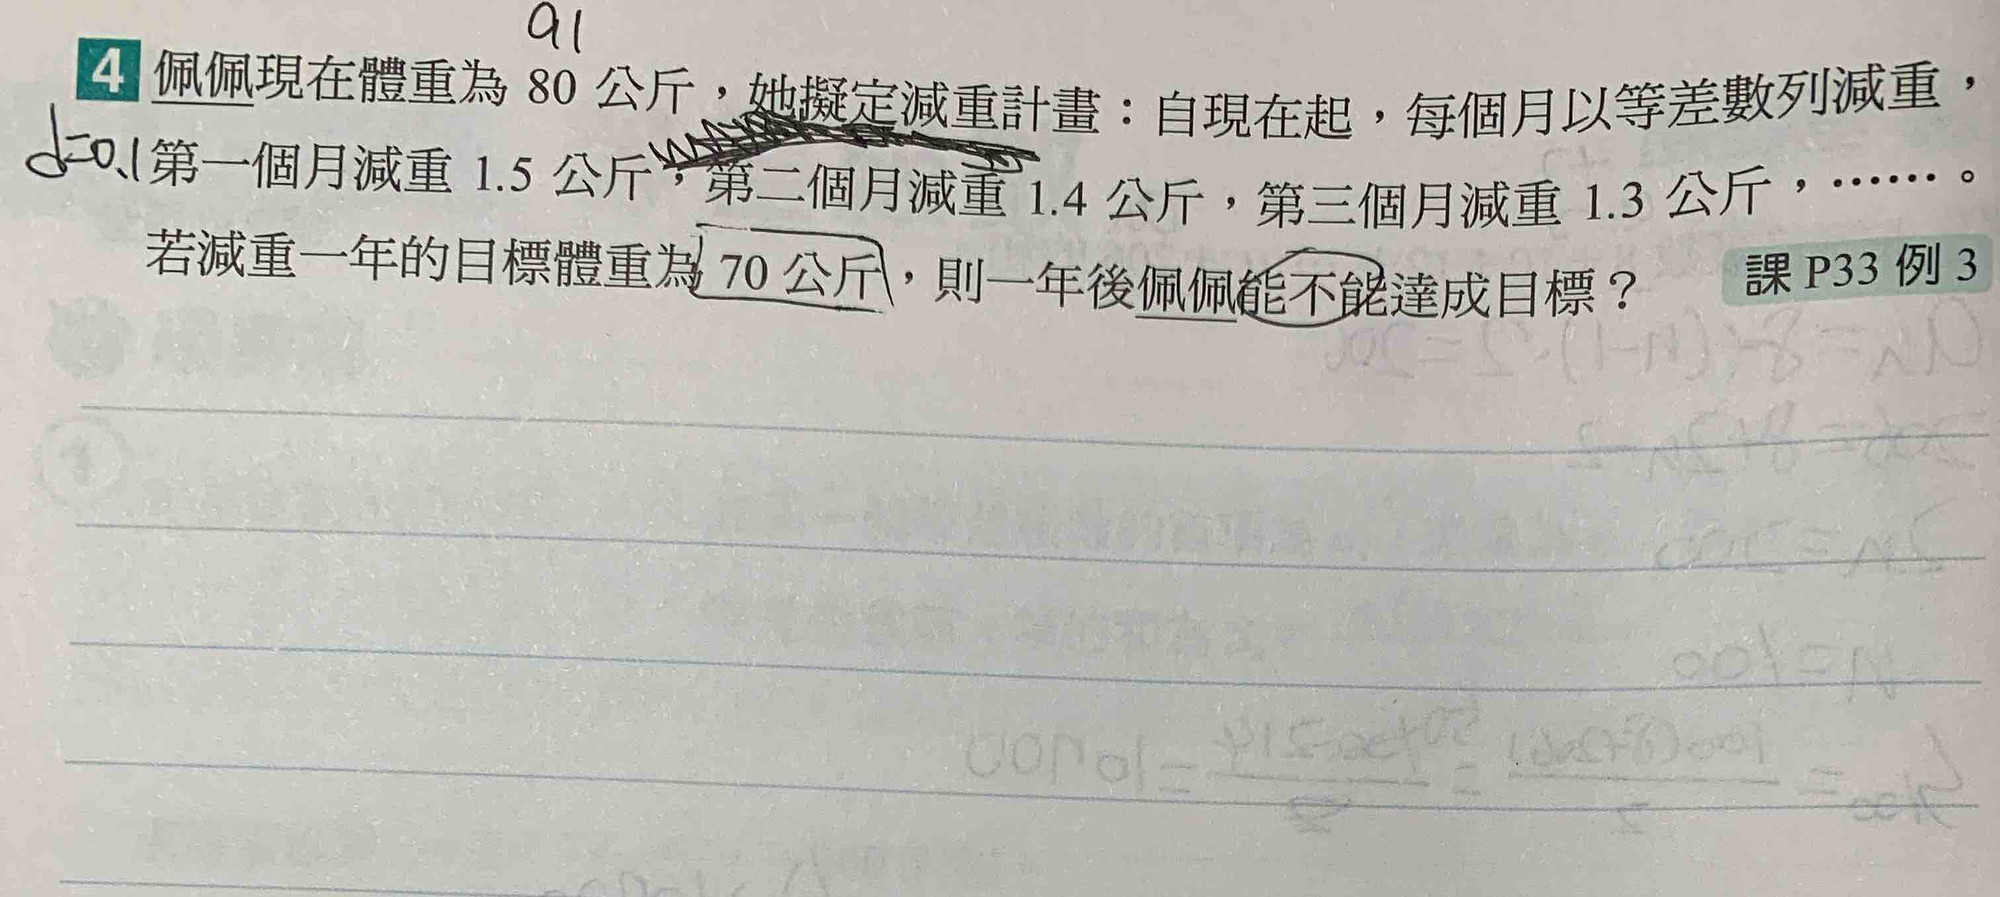 a1
4 佩佩現在體重為 80 公斤，她擬定減重計畫：自現在起，每個月以等差數列減重，
d=0.1 第一個月減重 1.5 公斤，第二個月減重 1.4 公斤，第三個月減重 1.3 公斤，……。
若減重一年的目標體重為 70 公斤，則一年後佩佩能不能達成目標？
課 P33 例 3